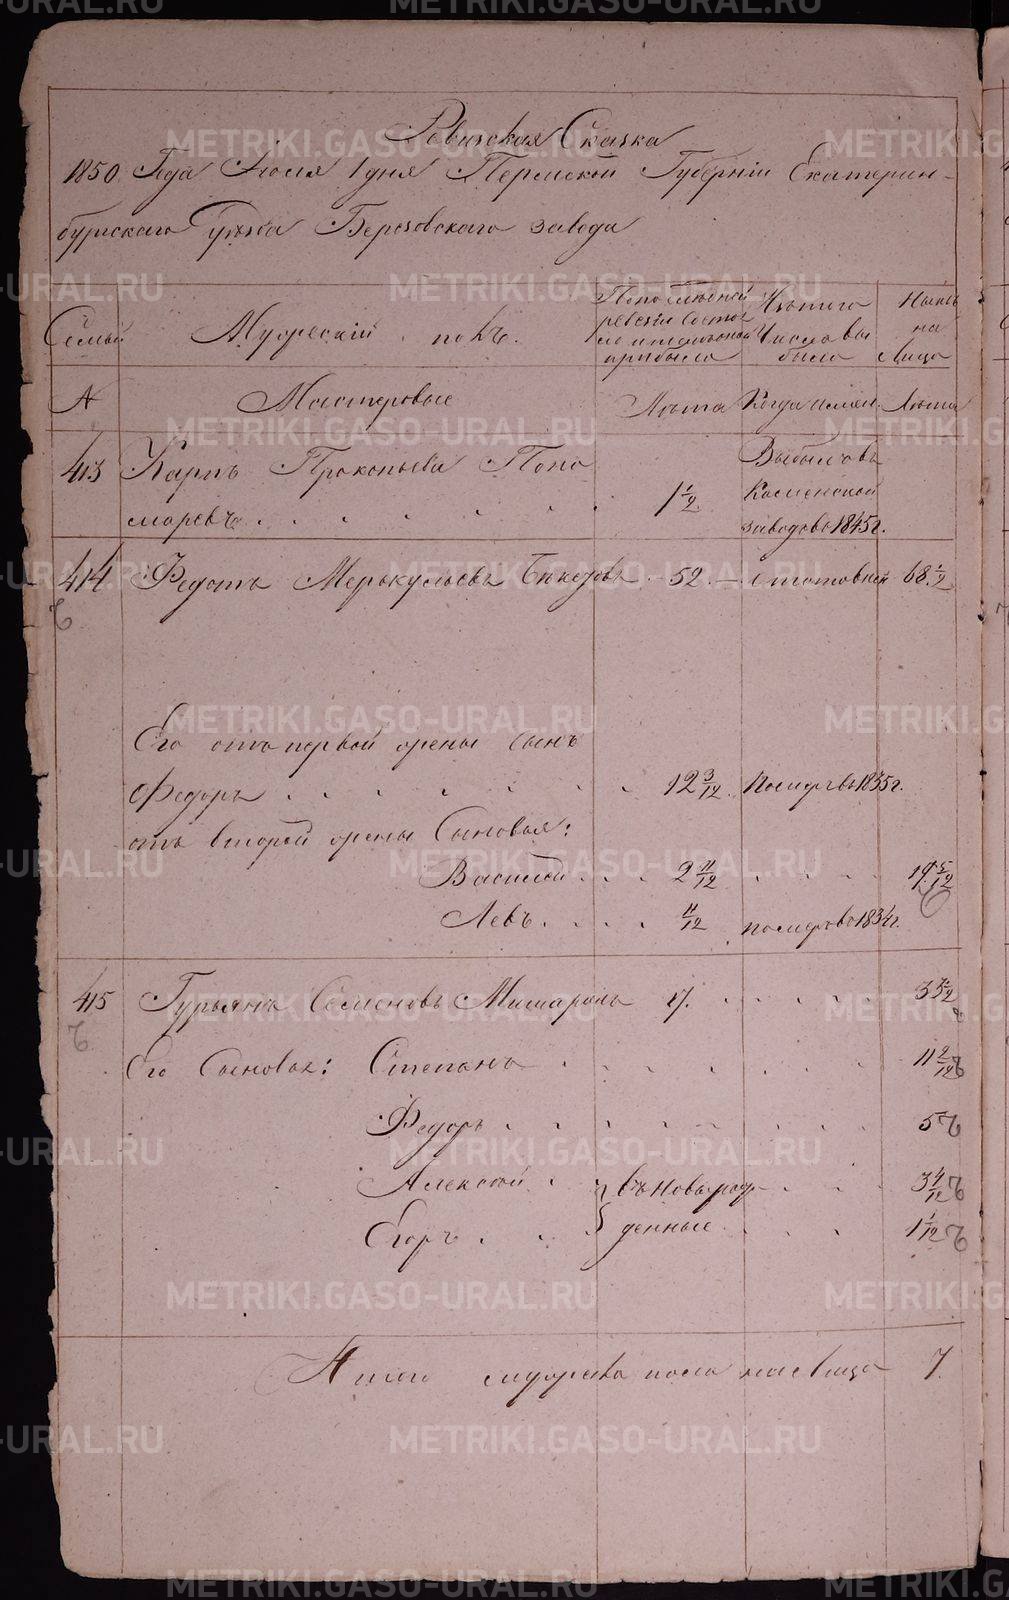 Ревизская Сказка
1850 Года Июля 1 дня Пермской Губернiи Екатерин-
бургскаго Уѣзда Березовскаго завода
Семьи
Мужескiй полъ.
По последней
ревизiи состоя
ло и после оной
прибыло
Изъ того
числа вы
было
Нынѣ
на
Лицо
№ Мастеровые Лѣта Когда имен. Лѣта
413 Карпъ Прокопьевъ Поно
маревъ . . . . . . . 1 1/2 Выбылъ въ
Каменской
заводъ въ 1845 г.
414 Федотъ Меркульевъ - 52 - 68 1/2
Его отъ первой жены сынъ
Федоръ . . . . . . . 12 3/12 Померъ въ 1835 г.
отъ второй жены Сыновья:
Василiй . . . 2 11/12 . . . . 19 5/12
Левъ . . . . 11/12 померъ въ 1834 г.
415 Гурьянъ Семеновъ 17 . . . . 33 1/2
Его Сыновья: Степанъ . . . . . . . 11 2/12
Федоръ . . . . . . . . 5
Алексѣй . } въ новь рож- . . 3 4/12
Егоръ . . . } денные . . . 1 1/12
Итого мужеска пола на лицо 7.
METRIKI.GASO-URAL.RU